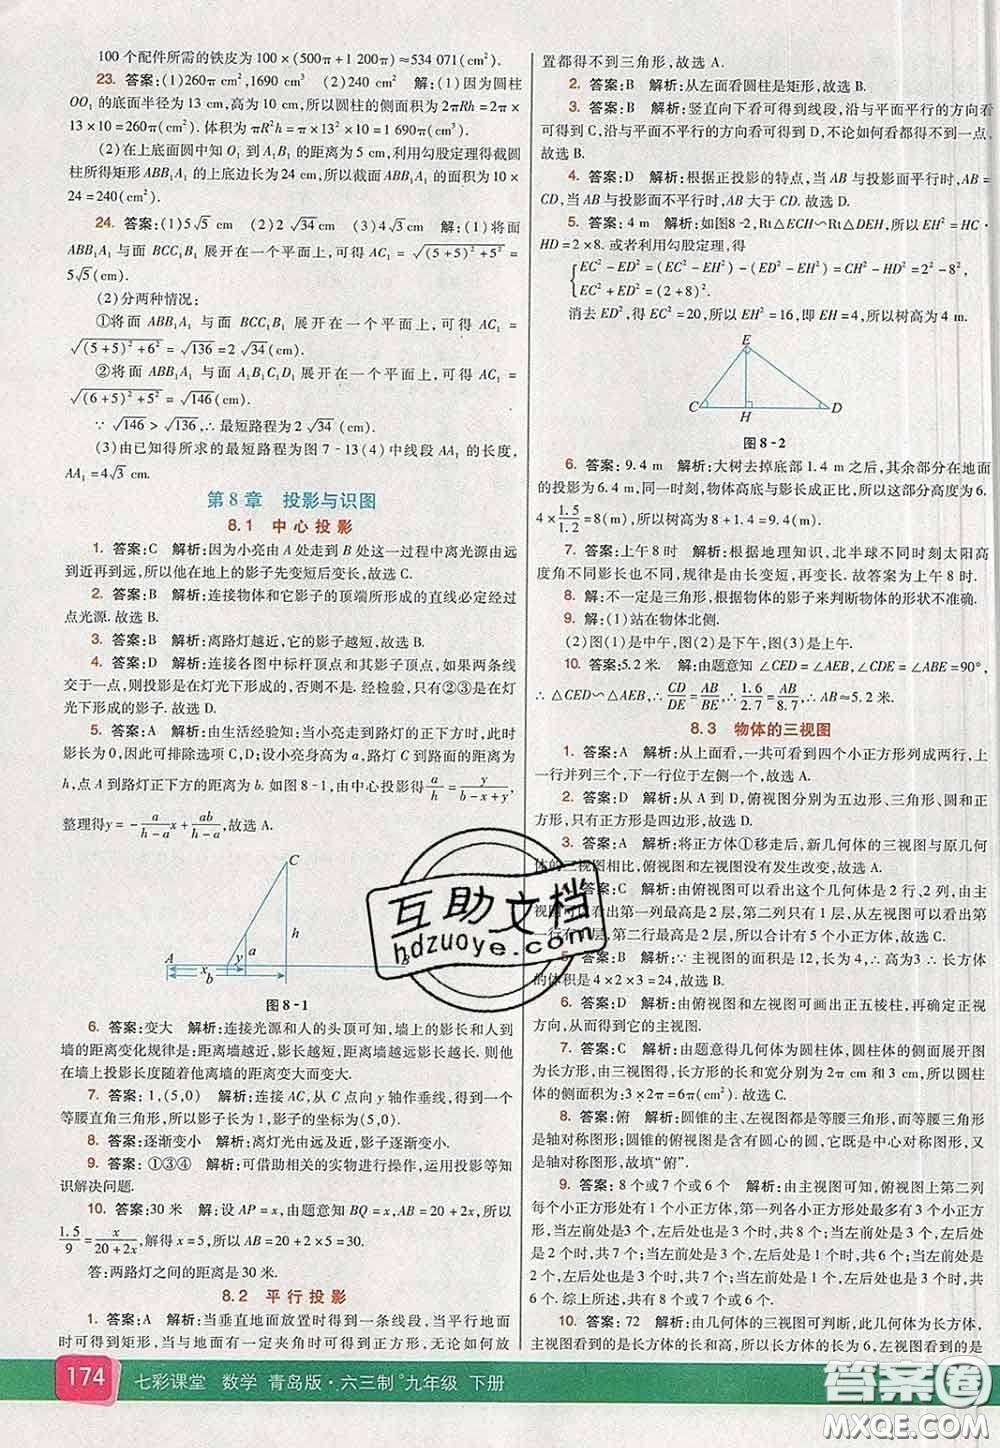 100 个配件所需的铁皮为 100×(500π+1 200π)≈534 071(cm²).
23. 答案:(1)260π cm²,1690 cm³ (2)240 cm² 解:(1)因为圆柱
OO₁ 的底面半径为 13 cm,高为 10 cm,所以圆柱的侧面积为 2πRh=2π×
13×10=260π(cm²).体积为 πR²h=π×13²×10=1 690π(cm³).
(2)在上底面圆中知 O₁ 到 A₁B₁ 的距离为 5 cm,利用勾股定理得截圆
柱所得矩形 ABB₁A₁ 的一边长为 24 cm,所以矩形 ABB₁A₁ 的面积为 10×
24=240(cm²).
24. 答案:(1)5√5 cm (2)2√34 cm (3)4√3 cm 解:(1)将面
ABB₁A₁ 与面 BCC₁B₁ 展开在一个平面上,可得 AC₁=√((5+5)²+5²)=
5√5(cm).
(2)分两种情况:
①将面 ABB₁A₁ 与面 BCC₁B₁ 展开在一个平面上,可得 AC₁=
√((5+5)²+6²)=√136=2√34(cm).
②将面 ABB₁A₁ 与面 A₁B₁C₁D₁ 展开在一个平面上,可得 AC₁=
√((6+5)²+5²)=√146(cm).
∵√146>√136,∴最短路程为 2√34(cm).
(3)由已知得所求的最短路程为图 7-13(4)中线段 AA₁ 的长度,
AA₁=4√3(cm).
第 8 章 投影与识图
8.1 中心投影
1. 答案:C 解析:因为小亮由 A 处走到 B 处这一过程中离光源由远
到近再到远,所以他在地上的影子先变短后变长,故选 C.
2. 答案:B 解析:连接物体和它影子的顶端所形成的直线必定经过
点光源.故选 B.
3. 答案:B 解析:离路灯越近,它的影子越短,故选 B.
4. 答案:D 解析:连接各图中标杆顶点和其影子顶点,如果两条线
交于一点,则投影是在灯光下形成的,否则不是.经检验,只有②③是在灯
光下形成的影子.故选 D.
5. 答案:A 解析:由生活经验知:当小亮走到路灯的正下方时,此时
影长为 0,因此可排除选项 C、D;设小亮身高为 a,路灯 C 到路面的距离为
h,点 A 到路灯正下方的距离为 b.如图 8-1,由中心投影得 a/h=y/(b-x+y),
整理得 y=-a/(h-a)x+ab/(h-a),故选 A.
C
h
a
A
x
y
b
B
图 8-1
6. 答案:变大 解析:连接光源和人的头顶可知,墙上的影长和人到
墙的距离变化规律是:距离墙越近,影长越短,距离墙越远,影长越长.则他
在墙上投影长度随着他离墙的距离变大而变大.
7. 答案:1,(5,0) 解析:连接 AC,从点 C 向 y 轴作垂线,可得一个
等腰直角三角形,所以影子长为 1,影子的坐标为(5,0).
8. 答案:逐渐变小 解析:离灯光由远及近,所以影子逐渐变小.
9. 答案:①③④ 解析:可借助相关的实物进行操作,运用投影等知
识解决问题.
10. 答案:30 米 解:设 AP=x,由题意知 BQ=x,AB=20+2x,所以
1.5/9=x/(20+2x),解得 x=5,所以 AB=20+2×5=30.
答:两路灯之间的距离是 30 米.
8.2 平行投影
1. 答案:A 解析:当垂直地面放置时得到一条线段,当平行地面
时可得到矩形,当与地面有一定夹角时可得到正方形,无论如何放
置都得不到三角形,故选 A.
2. 答案:B 解析:从左面看圆柱是矩形,故选 B.
3. 答案:B 解析:竖直向下看可得到线段,沿与平面平行的方向看
可得到 C,沿与平面不平行的方向看可得到 D,不论如何看都得不到一点.
故选 B.
4. 答案:D 解析:根据正投影的特点,当 AB 与投影面平行时,AB=
CD,当 AB 与投影面不平行时,AB 大于 CD.故选 D.
5. 答案:4 m 解析:如图8-2,Rt△ECH∽Rt△DEH,所以 EH²=HC·
HD=2×8.或者利用勾股定理,得
EC²-ED²=(CH²-EH²)-(EH²+HD²)=CH²-HD²=2²-8²,
EC²+ED²=(2+8)².
消去 ED²,得 EC²=20,所以 EH²=16,即 EH=4,所以树高为 4 m.
E
C
H
D
图 8-2
6. 答案:9.4 m 解析:大树去掉底部 1.4 m 之后,其余部分在地面
的投影为 6.4 m,同一时刻,物体高与影长成正比,所以其余部分高为 6.
4×1.5/1.2=8(m),所以树高为 8+1.4=9.4(m).
7. 答案:上午 8 时 解析:根据地理知识,北半球不同时刻太阳高
度角不同影长也不同,规律是由长变短,再变长.故答案为上午 8 时.
8. 解:不一定是三角形,根据物体的影子来判断物体的形状不准确.
9. 解:(1)站在物体北侧.
(2)图(1)是中午,图(2)是下午,图(3)是上午.
10. 答案:5.2 米 解:由题意知∠CED=∠AEB,∠CDE=∠ABE=90°,
∴△CED∽△AEB,∴CD/DE=AB/BE,∴1.6/2.7=AB/8.7,∴AB≈5.2 米.
8.3 物体的三视图
1. 答案:A 解析:从上面看,一共可看到四个小正方形列成两行,上
一行并列三个,下一行位于左侧一个,故选 A.
2. 答案:D 解析:从 A 到 D,俯视图分别为五边形、三角形、圆和正
方形,只有正方形是四边形,故选 D.
3. 答案:A 解析:将正方体①移走后,新几何体的三视图与原几何
体的三视图相比,俯视图和左视图没有发生改变,故选 A.
答案:C 解析:由俯视图可以看出这个几何体是 2 行、2 列,由主
视图可以看出第一列最高是 2 层,第二列只有 1 层,从左视图可以看出第
一行只有一层,第二行最高是 2 层,所以合计有 5 个小正方体,故选 C.
5. 答案:B 解析:∵主视图的面积是 12,长为 4,∴高为 3,∴长方体
的体积是 4×2×3=24,故选 B.
6. 答案:D 解析:由俯视图和左视图可画出正五棱柱,再确定正视
方向,可得到它的主视图.
7. 答案:C 解析:由题意得几何体为圆柱体,圆柱体的侧面展开图
为长方形,由三视图可得,长方形的长和宽分别为 2π cm 和 3 cm,所以它
的侧面积为:2π×3=6π(cm²),故选 C.
8. 答案:俯 解析:圆锥的主、左视图都是等腰三角形,而等腰三角形
是轴对称图形;圆锥的俯视图是含有圆心的圆,它既是中心对称图形,又
是轴对称图形,故填“俯”.
9. 答案:8 个或 7 个或 6 个 解析:由主视图可知,俯视图上第二列
每个小正方形位置只有 1 个,由左视图知,第一列各处最多有 3 个小正方
形,当左前处是 3 个,左后处也是 3 个时,共 8 个;当左前处是 3 个,左后
处是 2 个时,共 7 个;当左前处是 3 个,左后处是 1 个时,共 6 个;当左前
处是 2 个,左后处是 3 个时,共 7 个;当左前处是 1 个,左后处是 3 个时,
共 6 个.综上所述,共 8 个或 7 个或 6 个.
10. 答案:72 解析:由三个视图可判断,此几何体为长方体,
主视图看到的是长方体的长和高,所以长方体的长为 6,左视图看到的是
174 七彩课堂 数学 青岛版·六三制 九年级 下册
互助文档
hdzuoye.com
答案圈
MXQE.COM